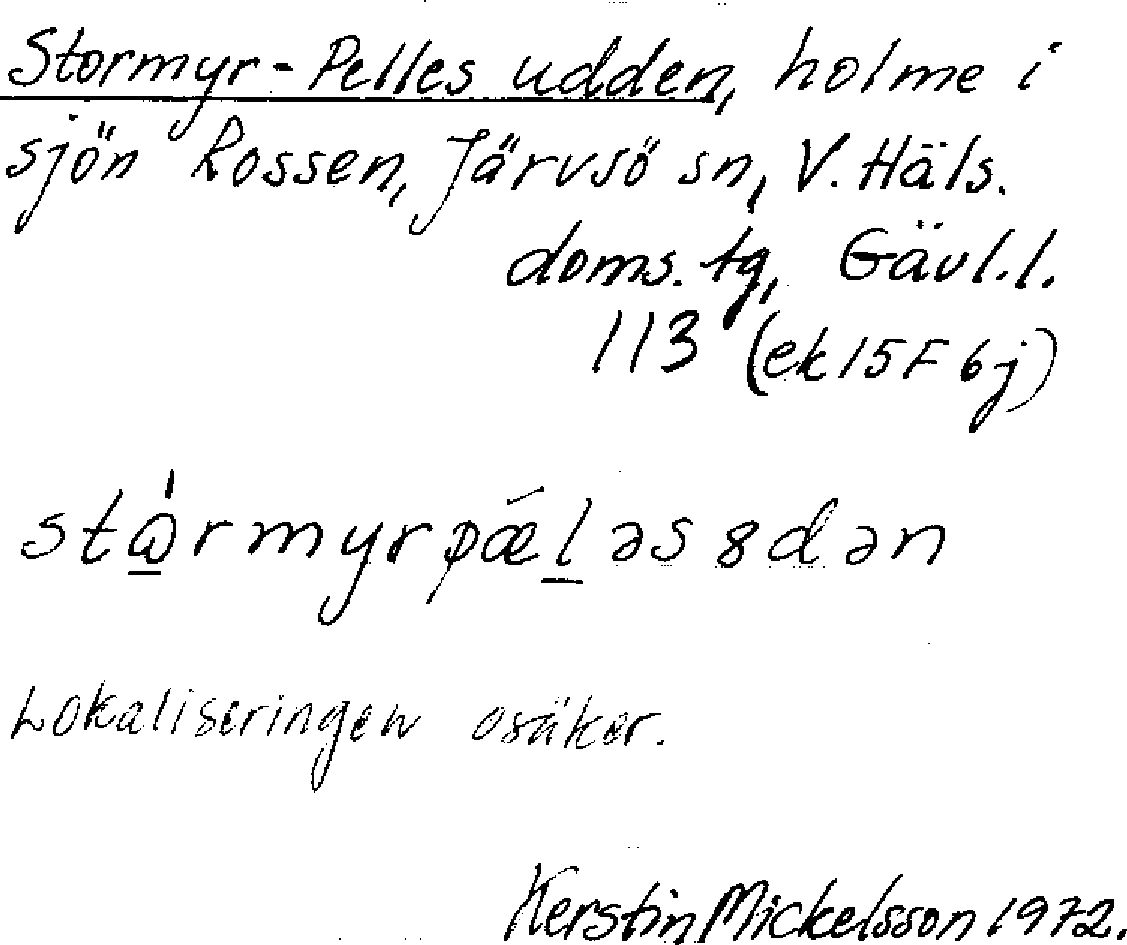 Stormyr-Pelles udden, holme i
sjön Rossen, Järvsö sn, V. Häls.
doms. tg, Gävl.l.
113 (ek 15F 6j)
stɷ̲́rmyrpǽl̲əs 8dən
Lokaliseringen osäker.
Kerstin Mickelsson 1972.